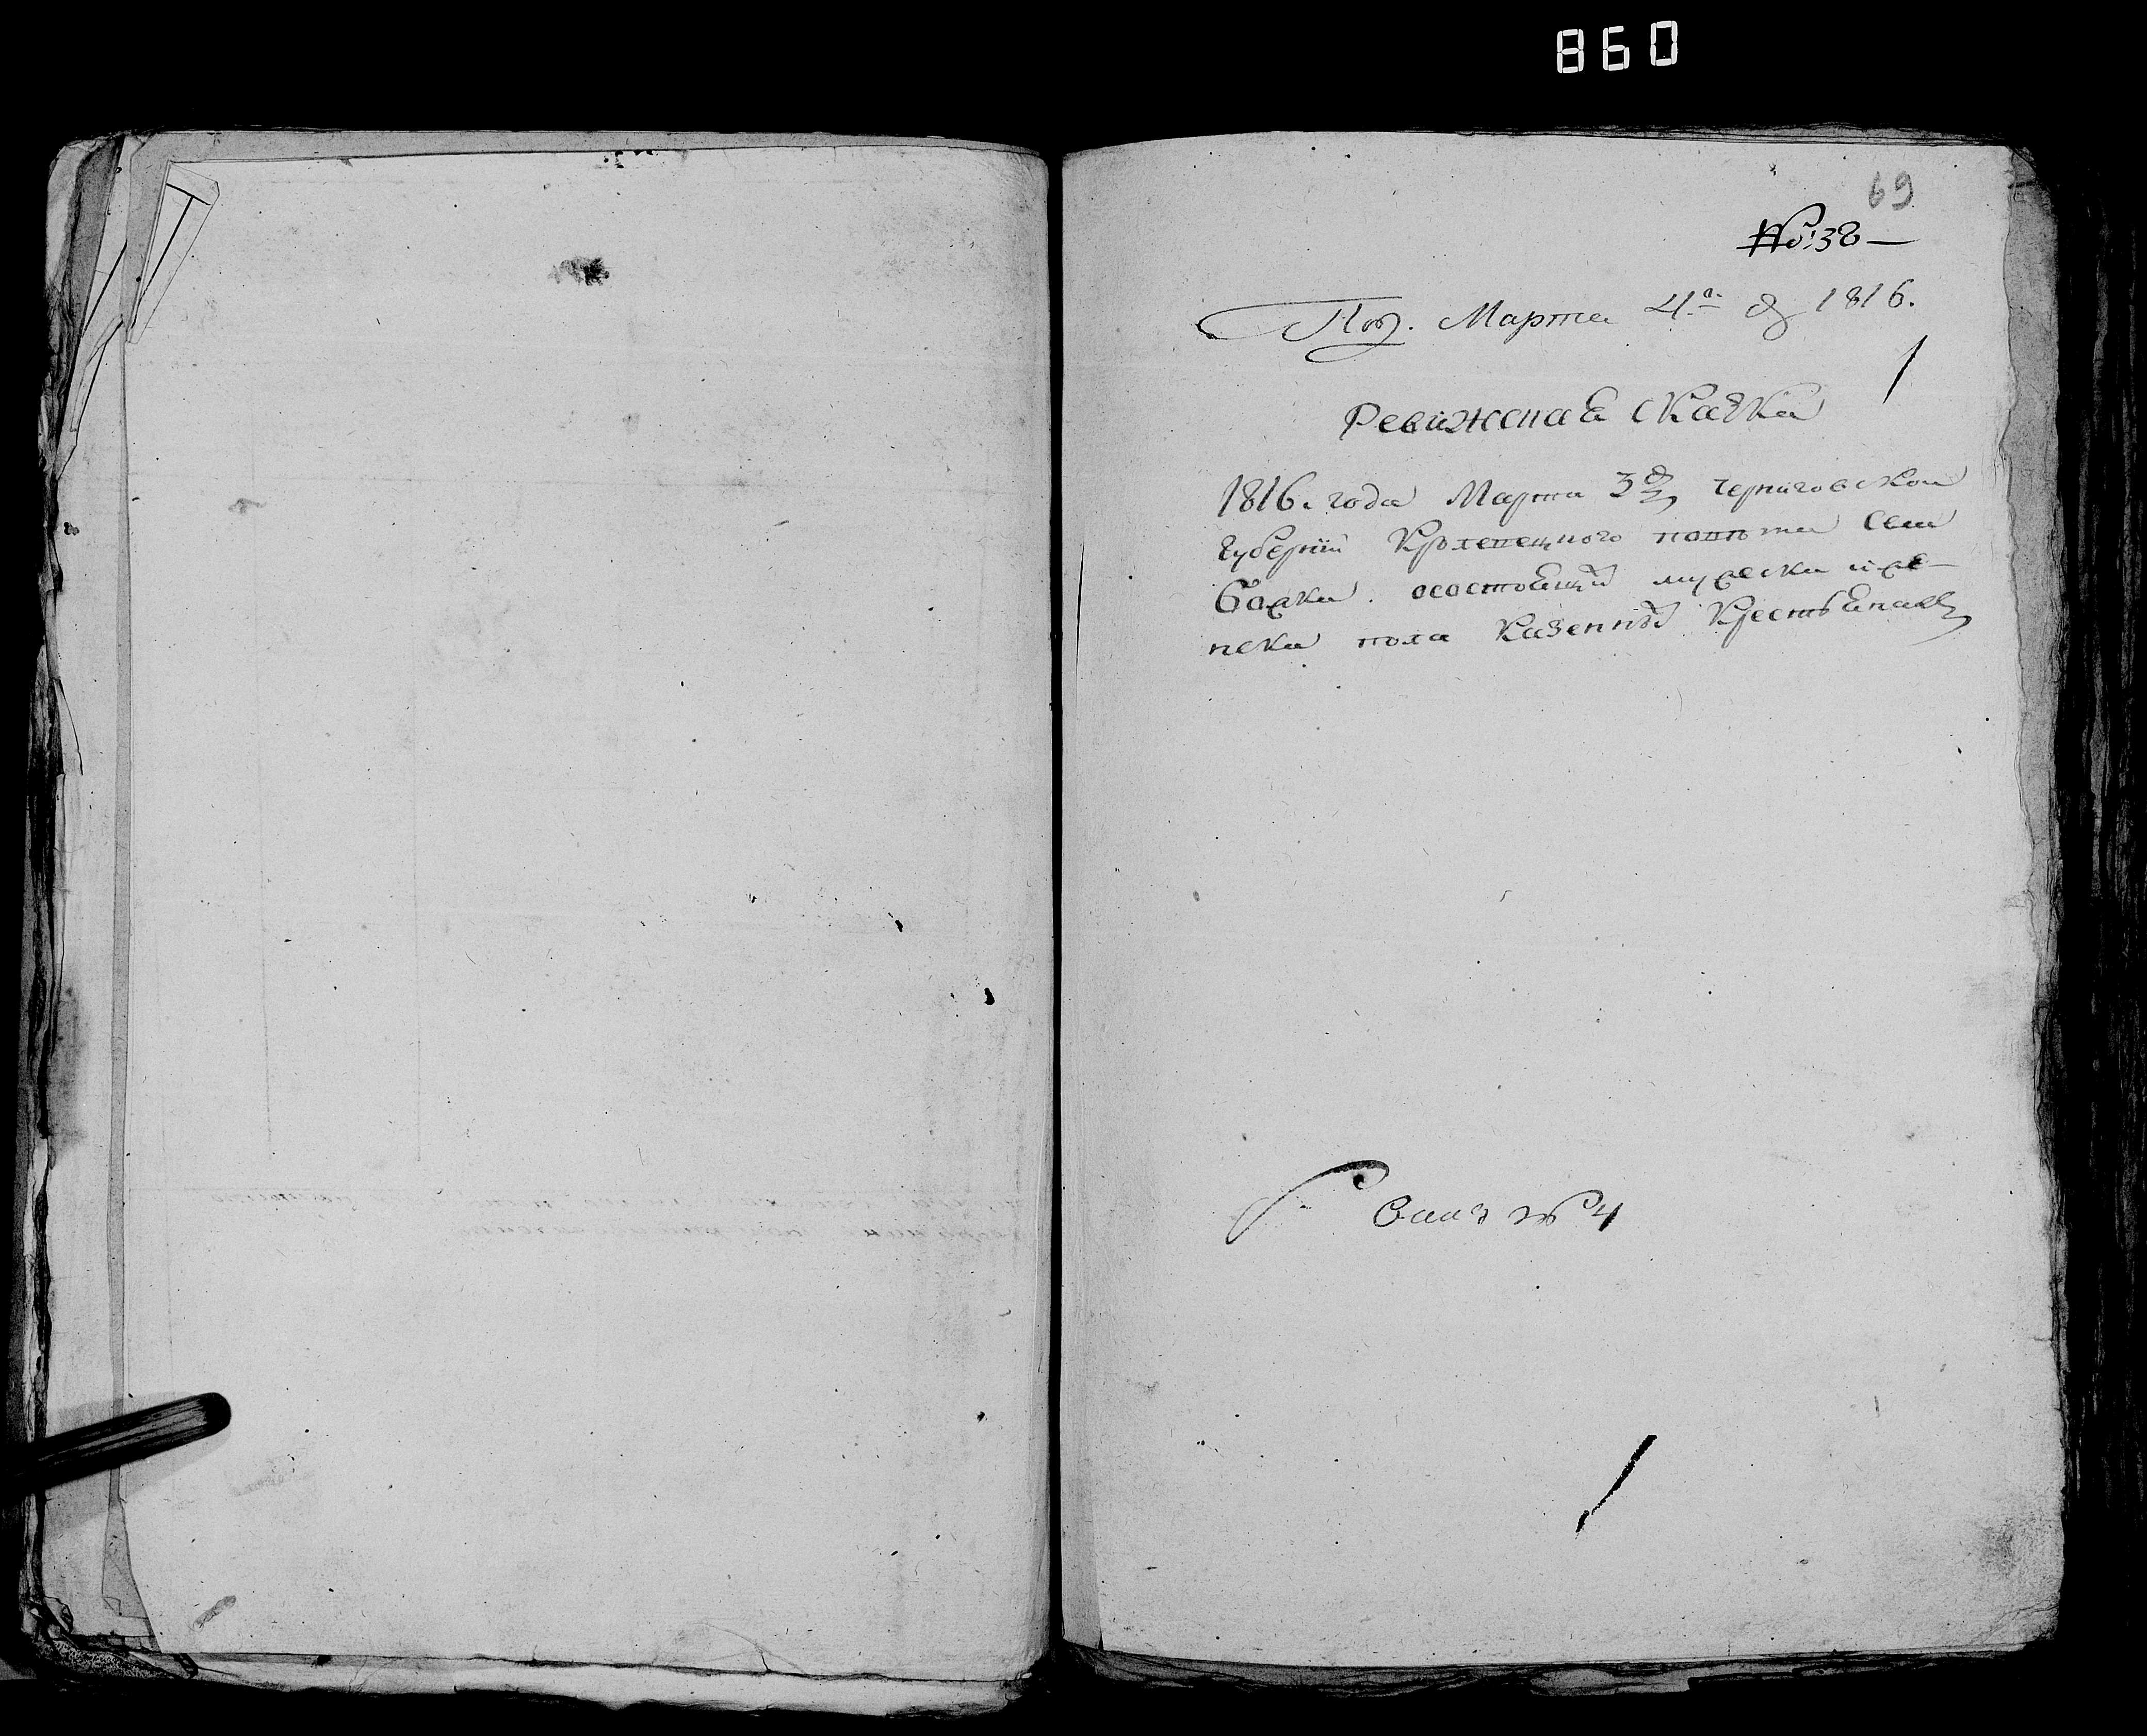 860
69
№: 38 —
Под. Марта 4го 1816.
Ревижная сказка
1816. года Марта 3д Черниговской
Губернии Кролевецкого повѣта Села
Бонки о состоящих мужеска и же-
нска пола казенных крестьянах
№ 4